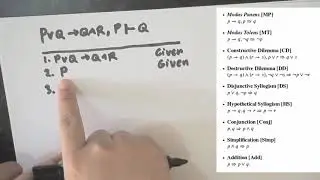 P∨Q → Q∧R, P ⊢ Q
1. P∨Q → Q∧R Given
2. P Given
3.
• Modus Ponens [MP]
p → q, p ⇒ q
• Modus Tolens [MT]
p → q, ¬q ⇒ ¬p
• Constructive Dilemma [CD]
• Destructive Dilemma [DD]
• Disjunctive Syllogism [DS]
p ∨ q, ¬p ⇒ q
• Hypothetical Syllogism [HS]
p → q, q → r ⇒ p → r
• Conjunction [Conj]
p, q ⇒ p ∧ q
• Simplification [Simp]
p ∧ q ⇒ p
• Addition [Add]
p ⇒ p ∨ q